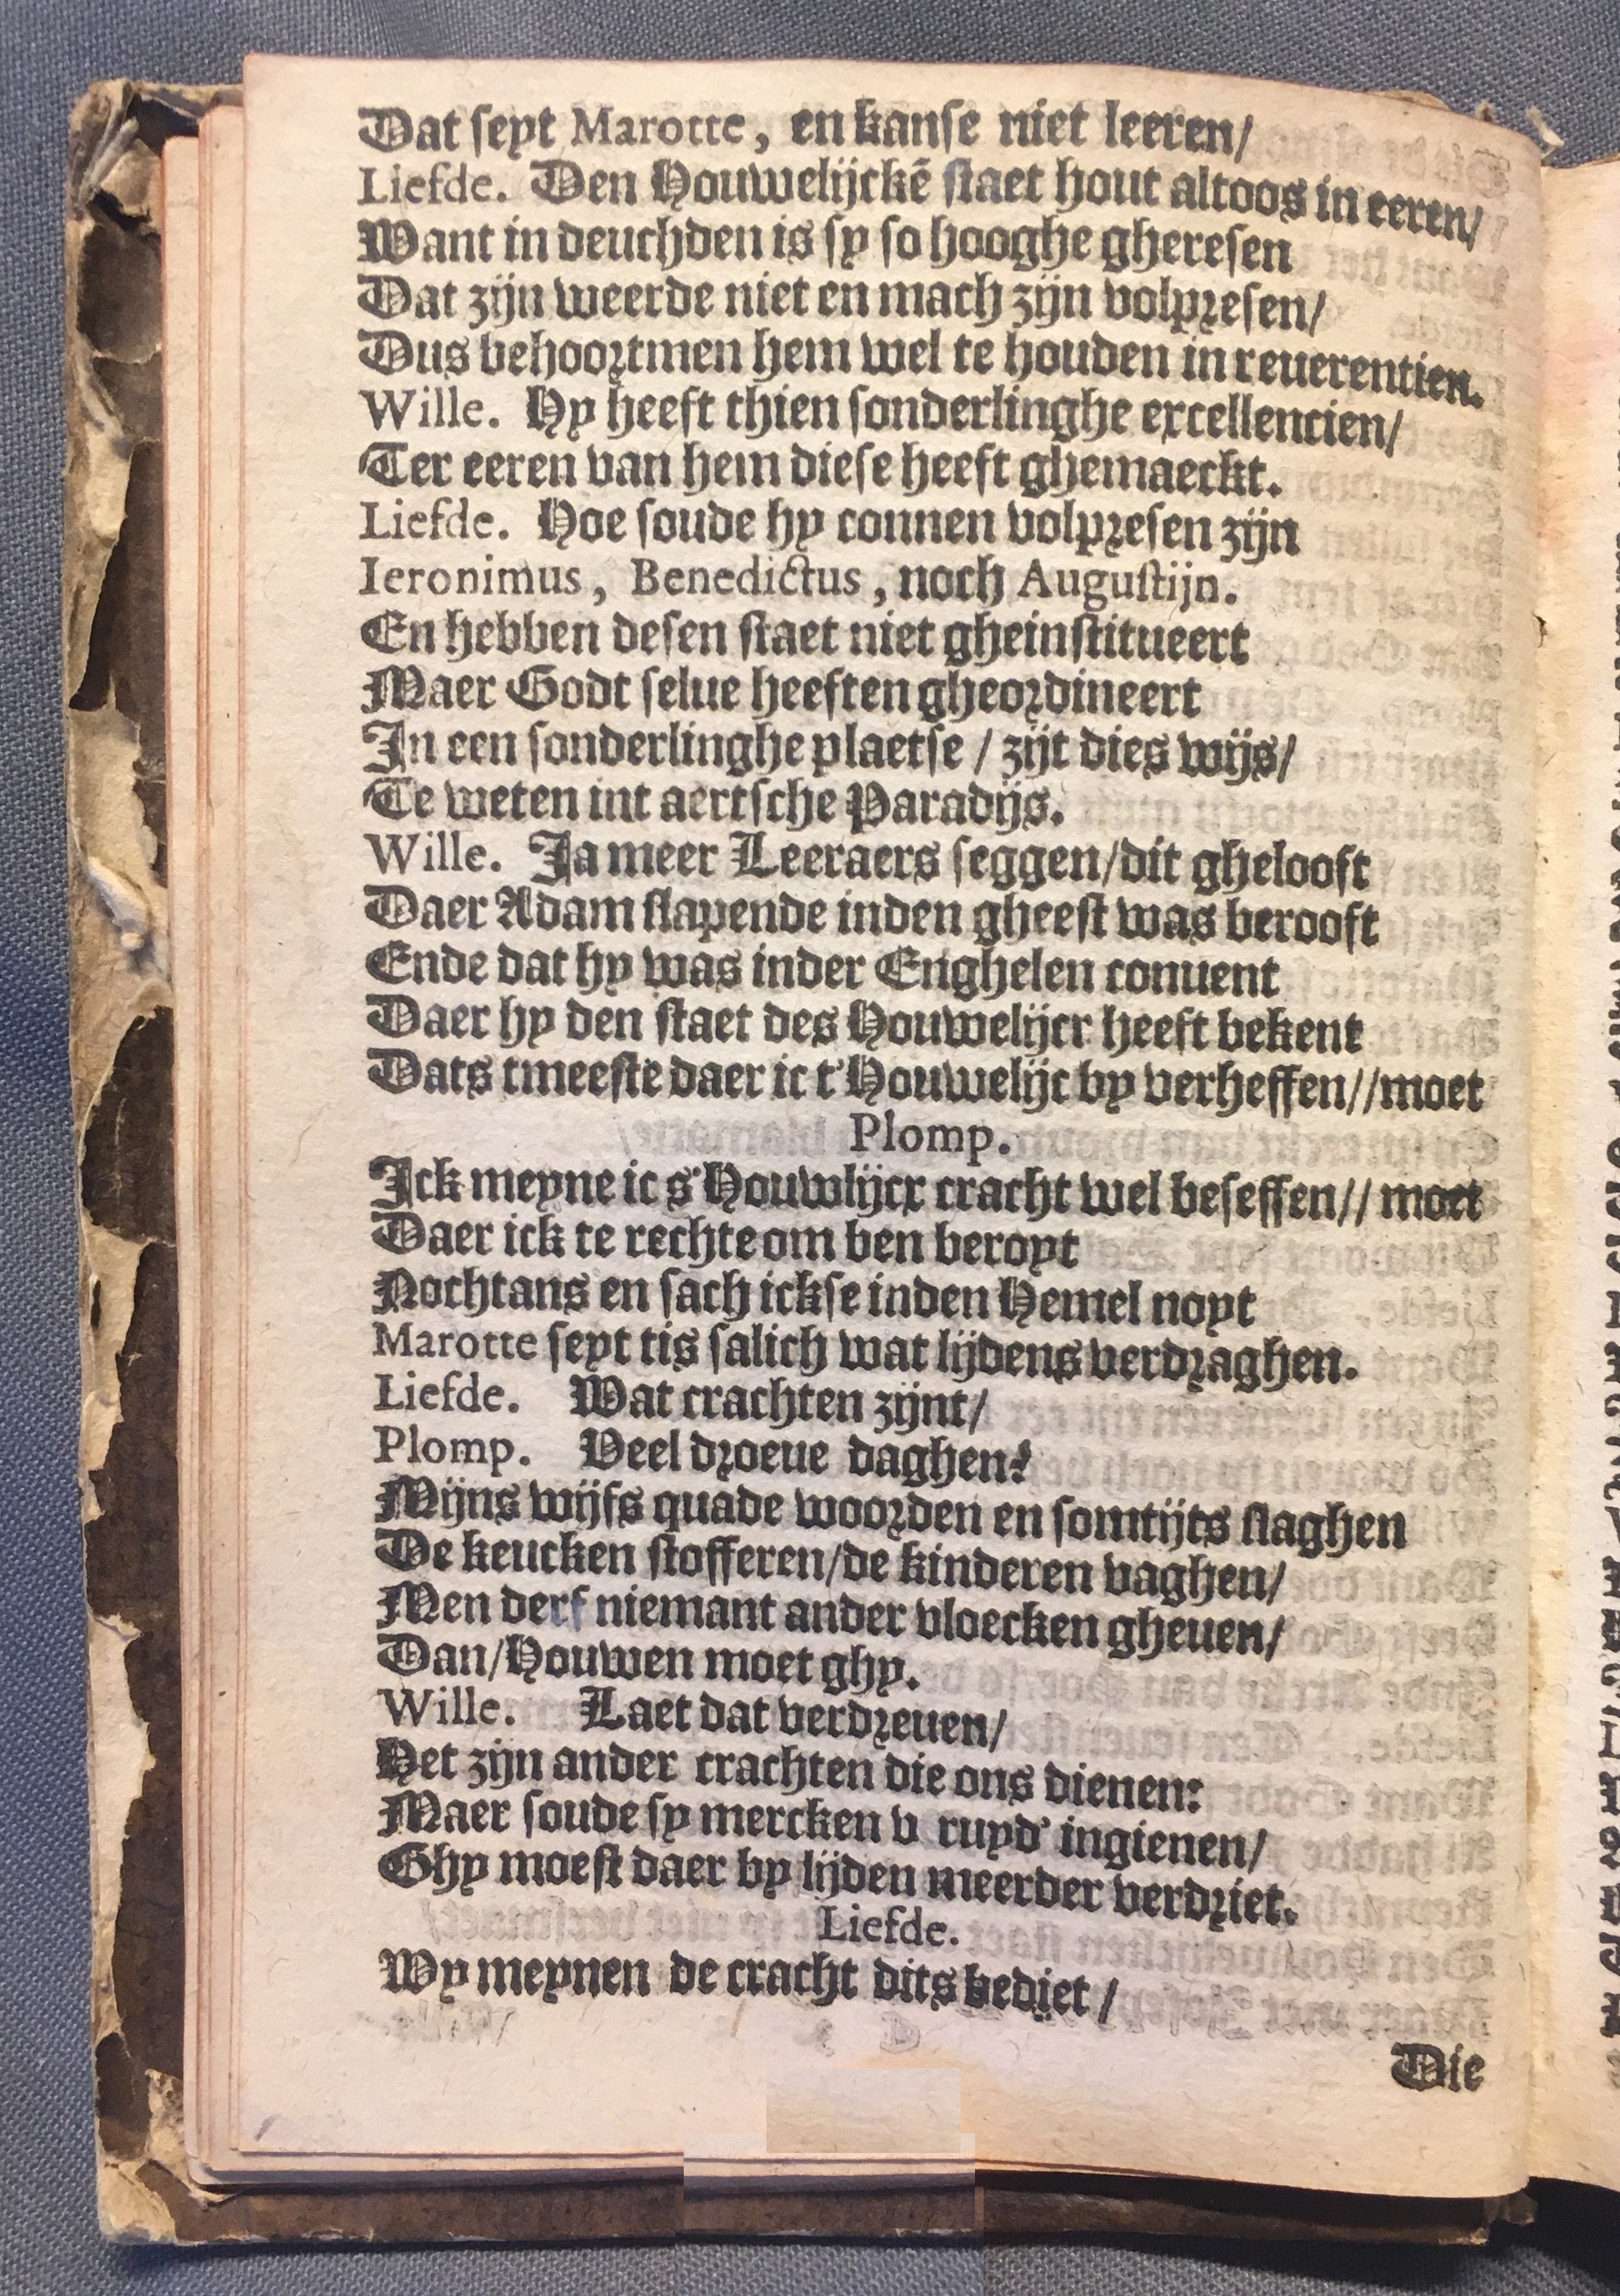 Dat seyt Marotte, en kanse niet leeren/
Liefde. Den Houwelijckē staet hout altoos in eeren/
Want in deuchden is sy so hooghe gheresen
Dat zijn weerde niet en mach zijn volpresen/
Dus behoortmen hem wel te houden in reuerentien.
Wille. Hy heeft thien sonderlinghe excellencien/
Ter eeren van hem diese heeft ghemaeckt.
Liefde. Hoe soude hy connen volpresen zijn
Ieronimus, Benedictus, noch Augustijn.
En hebben desen staet niet gheinstitueert
Maer Godt selue heeften gheordineert
In een sonderlinghe plaetse / zijt dies wijs/
Te weten int aertsche Paradijs.
Wille. Ja meer Leeraers seggen/dit ghelooft
Daer Adam slapende inden gheest was berooft
Ende dat hy was inder Enghelen conuent
Daer hy den staet des Houwelijcx heeft bekent
Dats tmeeste daer ic t'Houwelijc by verheffen//moet
Plomp.
Ick meyne ic s'Houwlijcx cracht wel beseffen// moet
Daer ick te rechte om ben beroyt
Nochtans en sach ickse inden Hemel noyt
Marotte seyt tis salich wat lijdens verdraghen.
Liefde. Wat crachten zijnt/
Plomp. Veel droeue daghen:
Mijns wijfs quade woorden en somtijts slaghen
De keucken stofferen/de kinderen vaghen/
Men derf niemant ander vloecken gheuen/
Dan/Houwen moet ghy.
Wille. Laet dat verdreuen/
Het zijn ander crachten die ons dienen:
Maer soude sy mercken v ruyd' ingienen/
Ghy moest daer by lijden meerder verdriet.
Liefde.
Wy meynen de cracht dits bediet /
Die